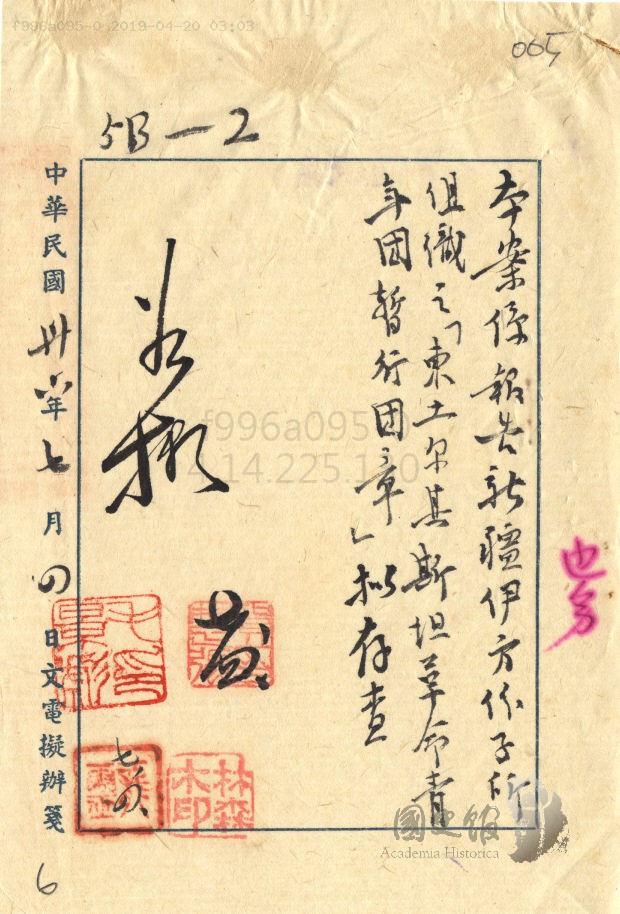 f996a095-0 2019-04-20 03:03
065
5B-2
本案係報告新疆伊方份子所
組織之「東土尔其斯坦革命青
年团暫行团章」拟存查
如擬
七、四、
林森木印
中華民國卅六年七月四日文電擬辦箋
6
f996a095-0
4.14.225.120
國史館
Academia Historica